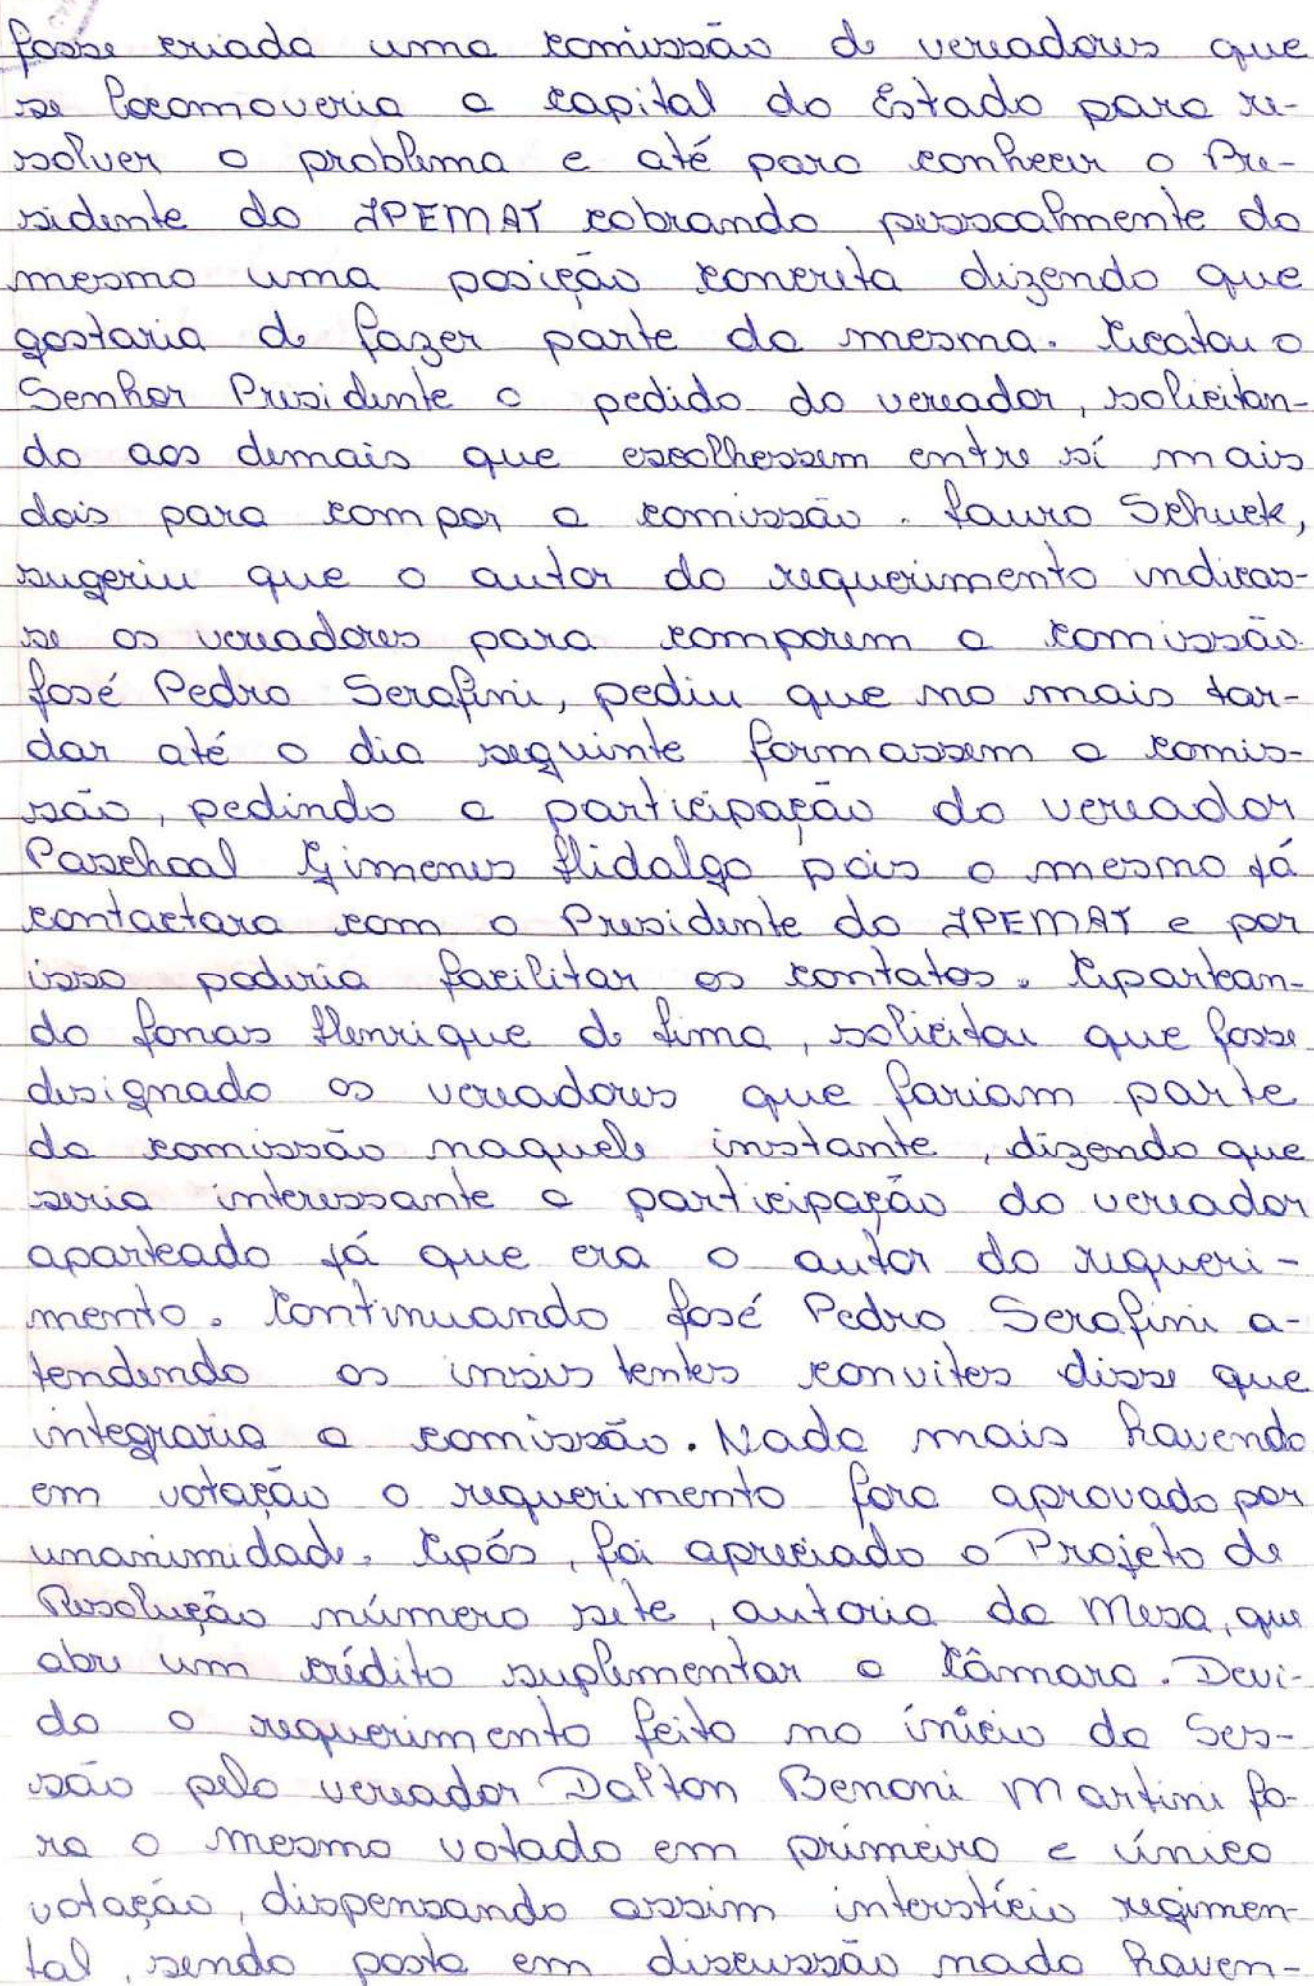 fosse criada uma comissão de vereadores que
se locomoveria a capital do Estado para re-
solver o problema e até para conhecer o Pre-
sidente do IPEMAT cobrando pessoalmente do
mesmo uma posição concreta dizendo que
gostaria de fazer parte da mesma. Acatou o
Senhor Presidente o pedido do vereador, solicitan-
do aos demais que escolhessem entre sí mais
dois para compor a comissão. Lauro Schuck,
sugeriu que o autor do requerimento indicas-
se os vereadores para comporem a comissão.
José Pedro Serafini, pediu que no mais tar-
dar até o dia seguinte formassem a comis-
são, pedindo a participação do vereador
Paschoal Gimenes Hidalgo pois o mesmo já
contactara com o Presidente do IPEMAT e por
isso poderia facilitar os contatos. Apartean-
do Jonas Henrique de Lima, solicitou que fosse
designado os vereadores que fariam parte
da comissão naquele instante, dizendo que
seria interessante a participação do vereador
aparteado já que era o autor do requeri-
mento. Continuando José Pedro Serafini a-
tendendo os insistentes convites disse que
integraria a comissão. Nada mais havendo
em votação o requerimento fora aprovado por
unanimidade. Após, foi apreciado o Projeto de
Resolução número sete, autoria da Mesa, que
abre um crédito suplementar a Câmara. Devi-
do o requerimento feito no início da Ses-
são pelo vereador Dalton Benoni Martini fo-
ra o mesmo votado em primeiro e única
votação, dispensando assim interstício regimen-
tal, sendo posto em discussão nada haven-